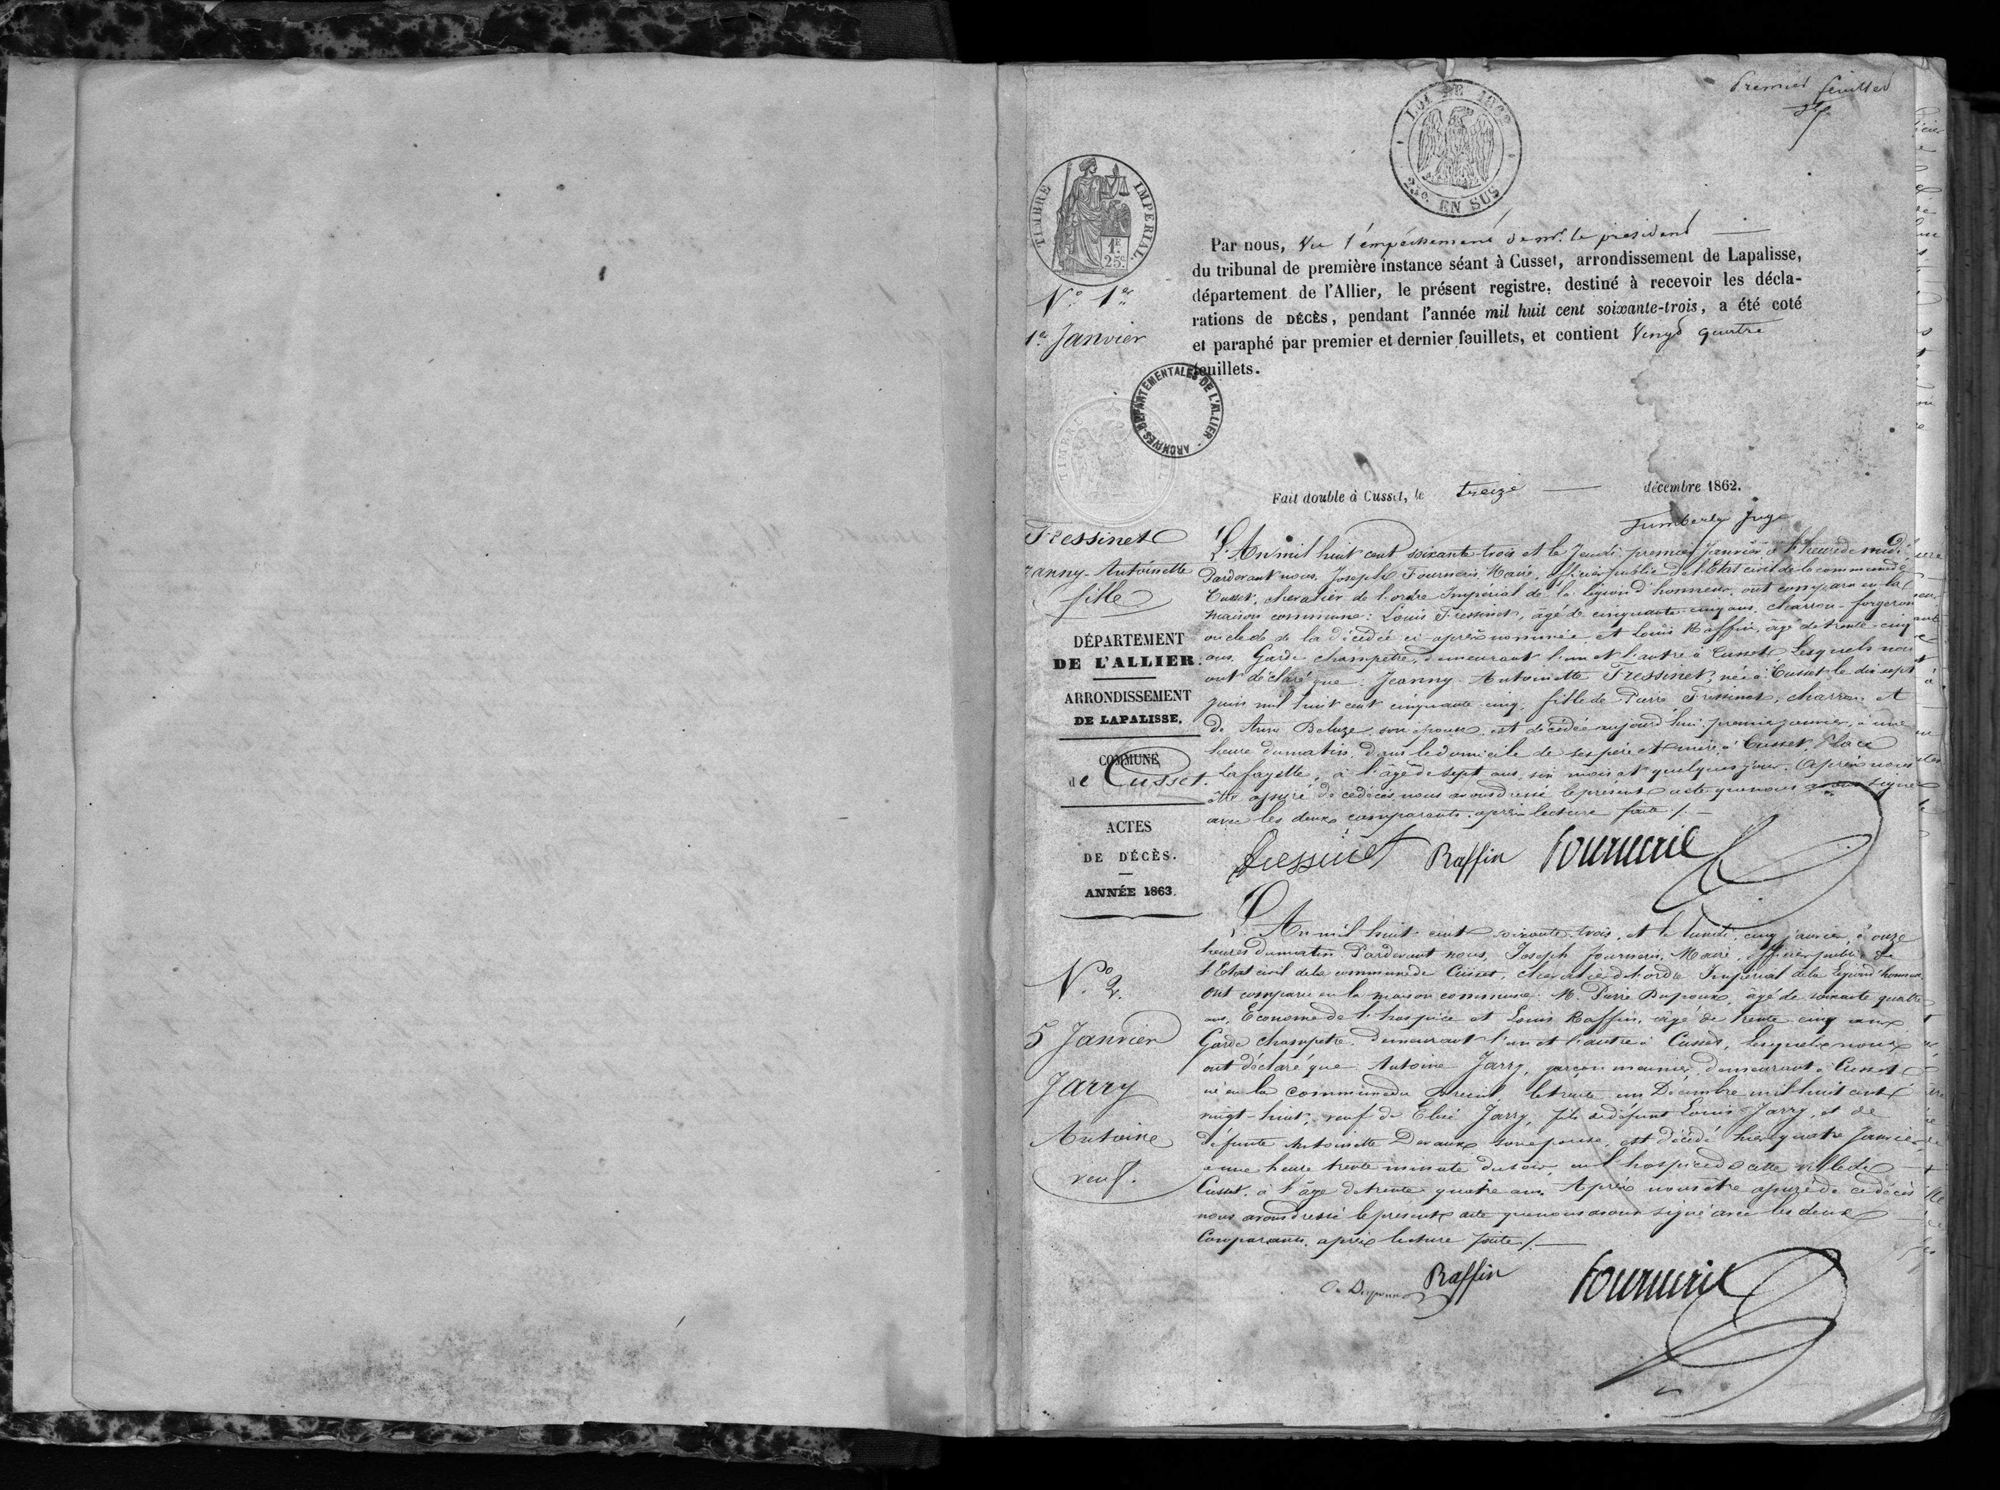 Premier feuillet
LOI DE 1862
25c. EN SUS
TIMBRE IMPERIAL
1F. 25c.
Par nous, Vu l'empêchement de Mr. le président
du tribunal de première instance séant à Cusset, arrondissement de Lapalisse,
département de l'Allier, le présent registre, destiné à recevoir les décla-
rations de DÉCÈS, pendant l'année mil huit cent soixante-trois, a été coté
et paraphé par premier et dernier feuillets, et contient Vingt quatre
feuillets.
ARCHIVES DÉPARTEMENTALES DE L'ALLIER
Fait double à Cusset, le treize décembre 1862.
Juge
N.o 1er
1er Janvier
Fressinet
Janny-Antoinette
fille
DÉPARTEMENT
DE L'ALLIER.
ARRONDISSEMENT
DE LAPALISSE.
COMMUNE
de Cusset.
ACTES
DE DÉCÈS.
ANNÉE 1863.
L'An mil huit cent soixante-trois et le Jeudi premier Janvier à l'heure de midi
Pardevant nous, Joseph Fourneris, Maire, officier public de l'Etat civil de la commune de
Cusset, chevalier de l'ordre Impérial de la légion d'honneur, ont comparu en la
maison commune: Louis Fressinet, âgé de cinquante-cinq ans, charron-forgeron
oncle de la décédée ci-après nommée et Louis Raffin, âgé de trente-cinq
ans, Garde champêtre, demeurant l'un et l'autre à Cusset, Lesquels nous
ont déclaré que: Jeanny-Antoinette Fressinet, née à Cusset le dix sept
juin mil huit cent cinquante-cinq, fille de Pierre Fressinet, charron et
de Anne Beluze son épouse, est décédée aujourd'hui premier janvier, à une
heure du matin, dans le domicile de ses père et mère à Cusset, Place
Lafayette, à l'âge de sept ans, six mois et quelques jours. Après nous
être assuré de ce décès nous avons dressé le présent acte que nous avons signé
avec les deux comparants, après lecture faite /.
Fressinet Raffin Fourneris
N.o 2.
5 Janvier
Jarry
Antoine
veuf.
L'An mil huit cent soixante-trois, et le lundi cinq janvier, à onze
heures du matin Pardevant nous, Joseph Fourneris, Maire, officier public de
l'Etat civil de la commune de Cusset, chevalier de l'ordre Impérial de la Légion d'honneur
Ont comparu en la maison commune: M. Pierre Dupoux, âgé de soixante quatre
ans, Econome de l'hospice et Louis Raffin, âgé de trente-cinq ans
Garde champêtre, demeurant l'un et l'autre à Cusset, lesquels nous
ont déclaré que Antoine Jarry, garçon meunier, demeurant à Cusset
né en la commune du Breuil, le trente un Décembre mil huit cent
vingt-huit, veuf de Jarry, fils de défunt Louis Jarry, et de
défunte Antoinette Devaux son épouse, est décédé hier quatre Janvier
à une heure trente minute du soir, en l'hospice de cette ville de
Cusset, à l'âge de trente quatre ans. Après nous être assuré de ce décès
nous avons dressé le présent acte que nous avons signé avec les deux
Comparants, après lecture faite /.
Raffin Fourneris